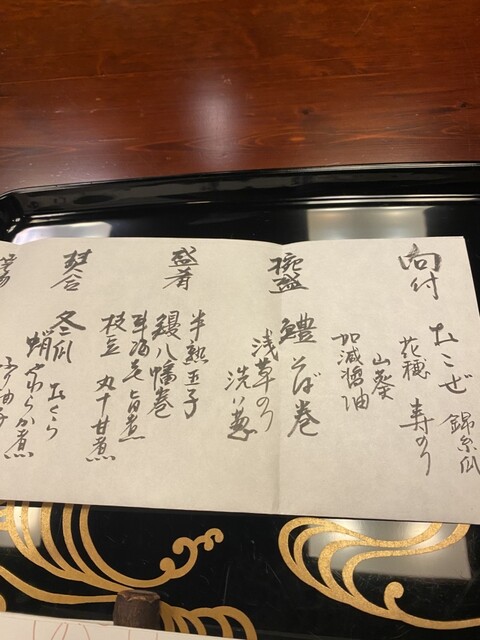 向付
おこぜ 錦糸瓜
花穂 寿のり
山葵
加減醤油
椀盛
鱧そば巻
浅草のり
洗い葱
盛肴
半熟玉子
鰻八幡巻
旨煮
枝豆 丸十甘煮
炊合
冬瓜 おくら
蛸やわらか煮
ふり柚子